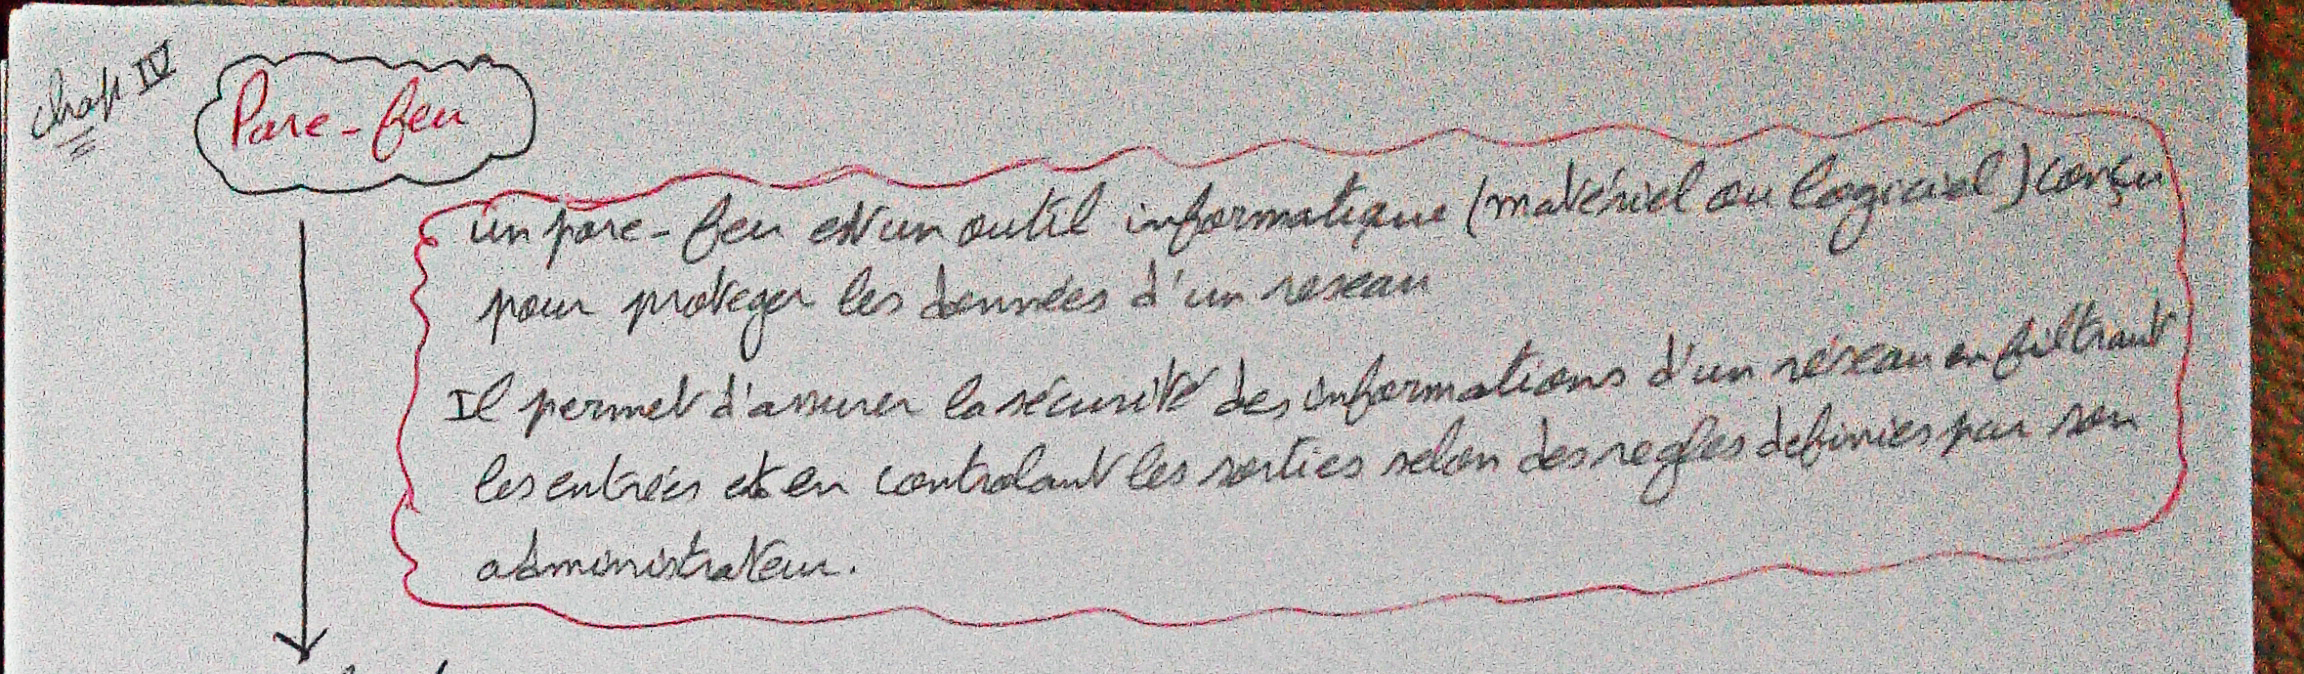 Chap IV
Pare-feu
un pare-feu est un outil informatique (matériel ou logiciel) conçu
pour proteger les données d'un reseau
Il permet d'assurer la sécurité des informations d'un réseau en filtrant
les entrées et en controlant les sorties selon des regles definies par son
administrateur.